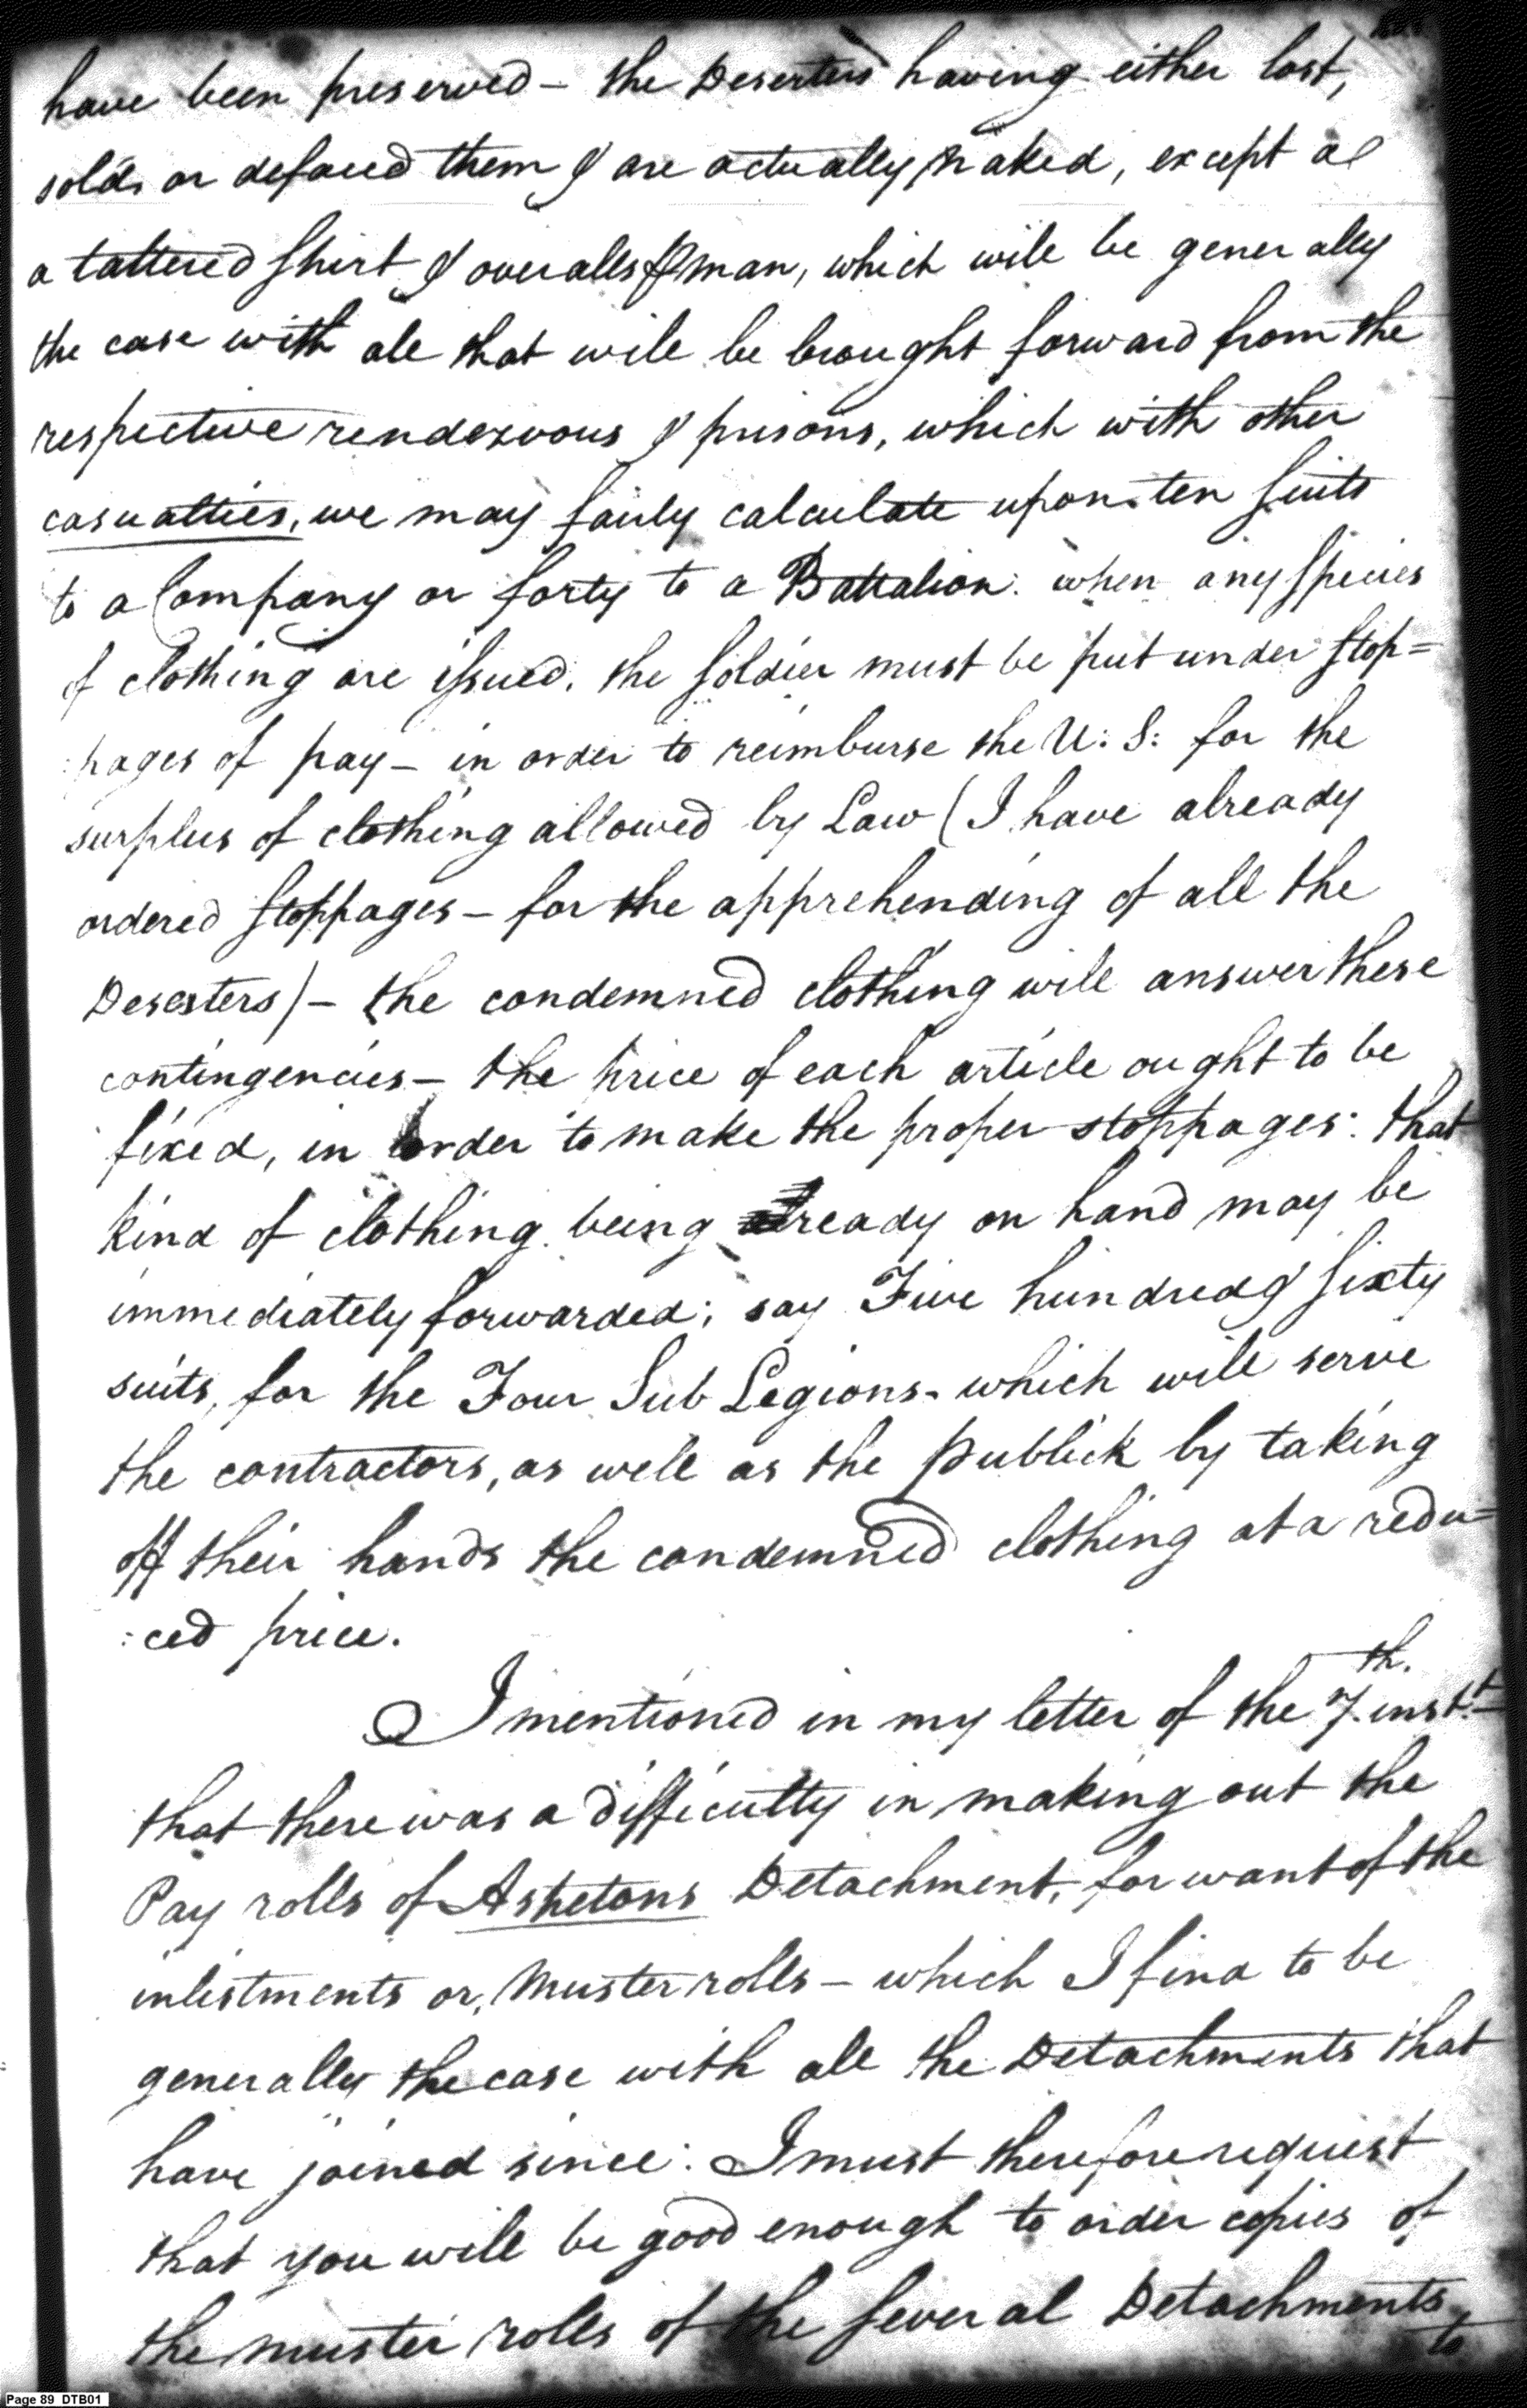 have been preserved – the Deserters having either lost,
sold, or defaced them & are actually naked, except a
a tattered Shirt & overalls ⅌ man, which will be generally
the case with all that will be brought forward from the
respective rendezvous & prisons, which with other
casualties, we may fairly calculate upon ten suits
to a Company or forty to a Battalion: when any species
of clothing are issued, the soldier must be put under stop=
:pages of pay – in order to reimburse the U: S: for the
surplus of clothing allowed by Law (I have already
ordered stoppages – for the apprehending of all the
Deserters) – the condemned clothing will answer these
contingencies – the price of each article ought to be
fixed, in order to make the proper stoppages: that
kind of clothing being already on hand may be
immediately forwarded; say Five hundred & sixty
suits, for the Four Sub Legions – which will serve
the contractors, as well as the publick by taking
off their hands the condemned clothing at a redu=
:ced price.
I mentioned in my letter of the 7th. inst.t
that there was a difficulty in making out the
Pay rolls of Ashetons Detachment, for want of the
inlistments or, Muster rolls – which I find to be
generally the case with all the Detachments that
have joined since: I must therefore request
that you will be good enough to order copies of
the muster rolls of the several Detachments
to
Page 89 DTB01